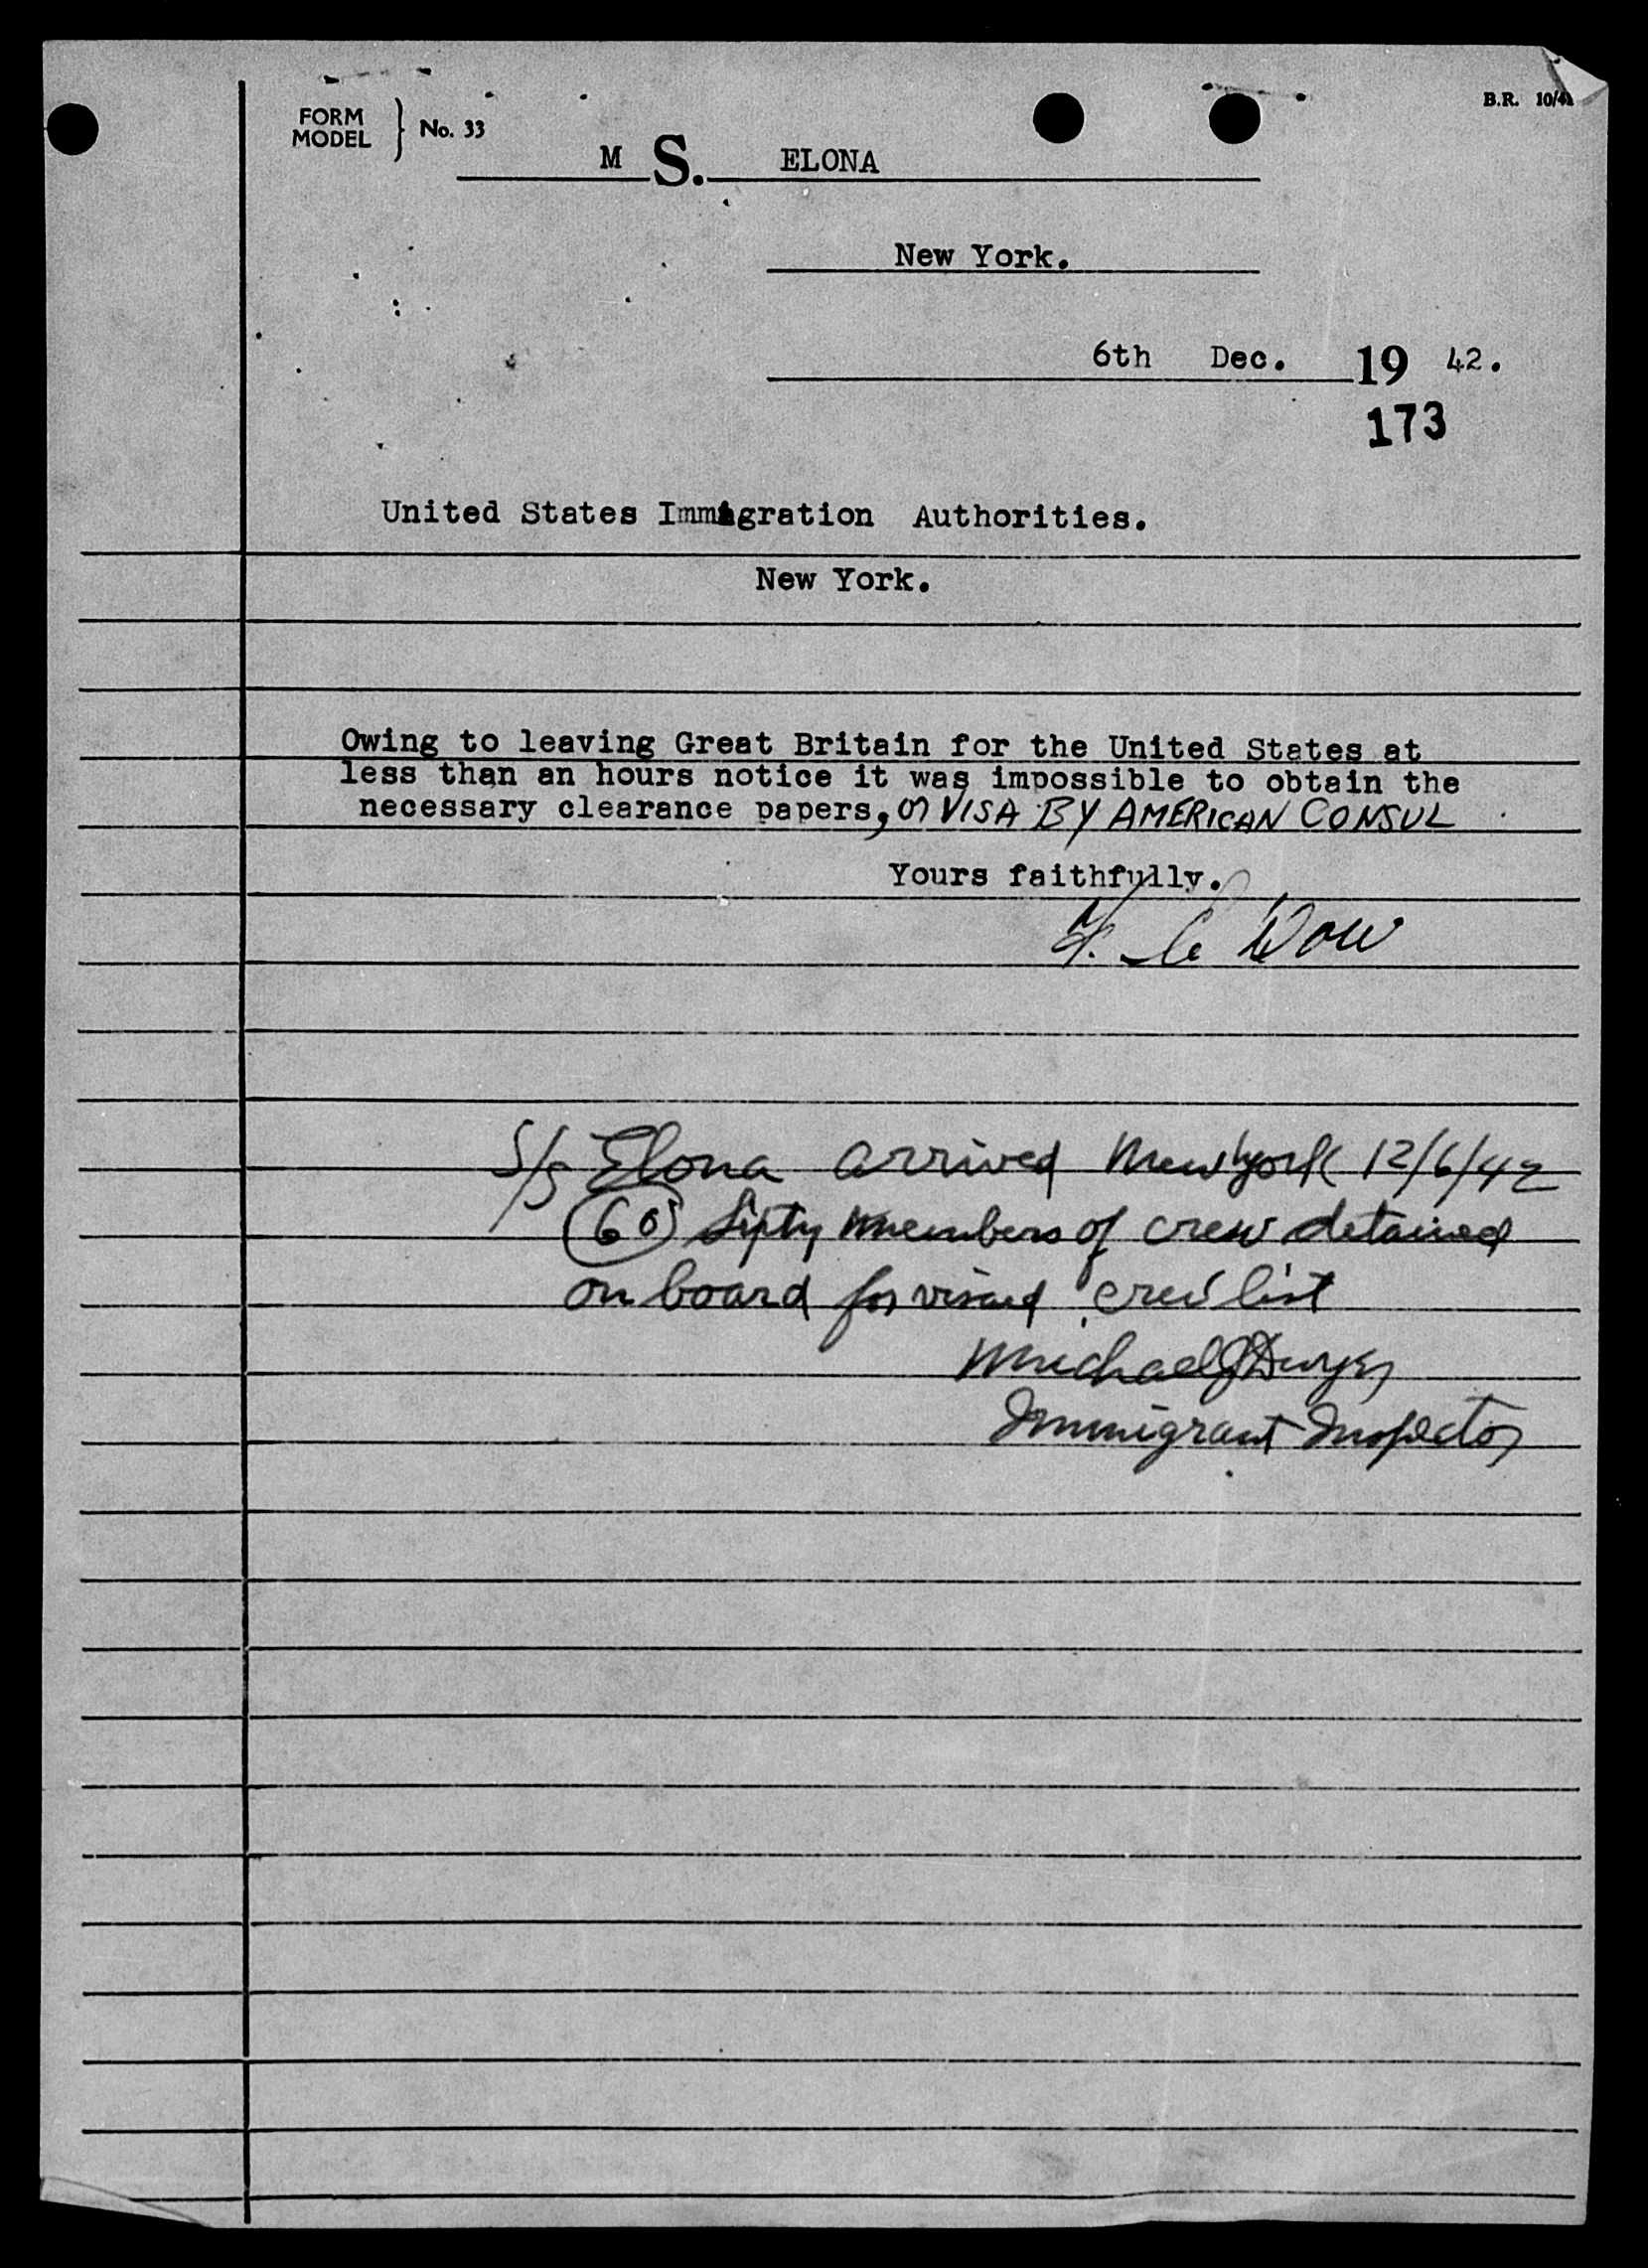 FORM
MODEL } No. 33
B.R. 10/41
M S. ELONA
New York.
6th Dec. 19 42.
173
United States Immigration Authorities.
New York.
Owing to leaving Great Britain for the United States at
less than an hours notice it was impossible to obtain the
necessary clearance papers, or VISA BY AMERICAN CONSUL
Yours faithfully.
Dow
S/S Elona arrived New York 12/6/42
(60) Sixty members of crew detained
on board for visaed crew list
Michael J Dwyer
Immigrant Inspector